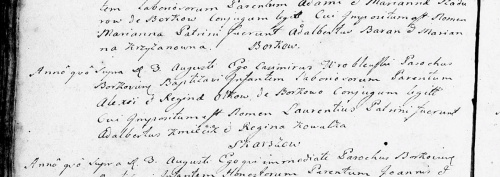 tem Laboriosorum Parentum Adami & Marianna Kadu
row de Borkow Conjugum legitt Cui Impositum est Nomen
Marianna Patrini fuerunt Adalbertus Baran & Marian
na Krzydanowna.
Borkow.
Anno quo Supra R. 3. Augusti Ego Casimirus Parochus
Borkovien Baptisavi Infantem Laboriosorum Parentum
Alexii & Regina de Borkowo Conjugum legitt
Cui Impositum est Nomen Laurentius Patrini fuerunt
Adalbertus Kmiecik & Regina Kowalka
Anno quo Supra R. 3. Augusti Ego qui immediate Parochus Borkovien
Infantem Honestorum Parentum Joannis et